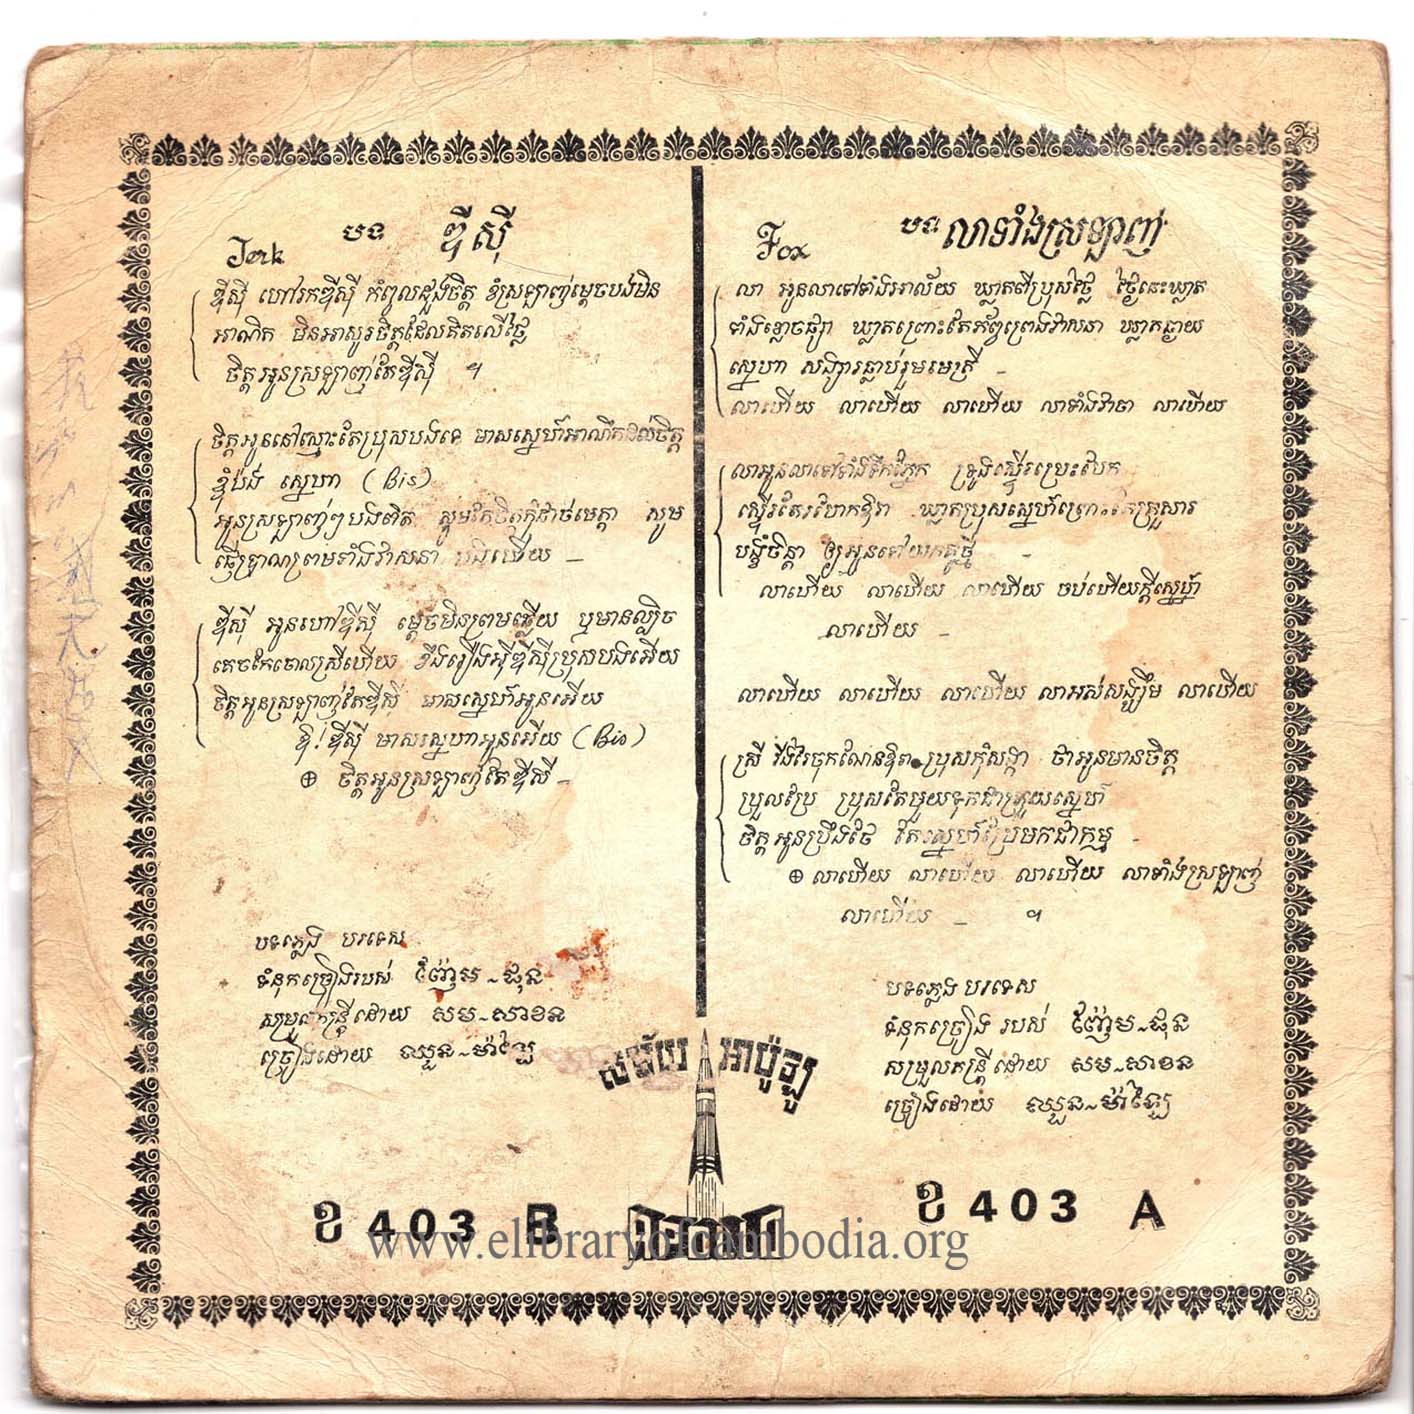 Jerk បទ ឌីស៊ី
ឌីស៊ី ហៅរកឌីស៊ី កំពូលដួងចិត្ត ខំស្រឡាញ់ម្ដេចបងមិន
អាណិត មិនអាសូរចិត្តដែលគិតលើថ្លៃ
ចិត្តអូនស្រឡាញ់តែឌីស៊ី ។
ចិត្តអូននៅស្មោះតែប្រុសបងទេ មាសស្នេហ៍អាណិតដល់ចិត្ត
ខ្ញុំប៉ង ស្នេហា (Bis)
អូនស្រឡាញ់ៗបងពិត សូមតែចិត្តកុំដាច់មេត្តា សូម
ផ្ញើប្រាណព្រមទាំងវាសនា បងហើយ –
ឌីស៊ី អូនហៅឌីស៊ី ម្ដេចមិនព្រមឆ្លើយ ឬមានល្បិច
គេចកែចោលស្រីហើយ ខឹងរឿងអ៊ីឌីស៊ីប្រុសបងអើយ
ចិត្តអូនស្រឡាញ់តែឌីស៊ី មាសស្នេហ៍អូនអើយ
ឱ! ឌីស៊ី មាសស្នេហាអូនអើយ (Bis)
⊕ ចិត្តអូនស្រឡាញ់តែឌីស៊ី –
បទភ្លេង បរទេស
ទំនុកច្រៀងរបស់ ញ៉ែម ~ ផុន
សម្រួលតន្ត្រីដោយ សម ~ សាខន
ច្រៀងដោយ ឈួន ~ ម៉ាឡៃ
ខ 403 B
Fox បទ លាទាំងស្រឡាញ់
លា អូនលាទៅទាំងអាល័យ ឃ្លាតពីប្រុសថ្លៃ ថ្ងៃនេះឃ្លាត
ទាំងខ្លោចផ្សា ឃ្លាតព្រោះតែភ័ព្វព្រេងវាសនា ឃ្លាតឆ្ងាយ
ស្នេហា សង្សារធ្លាប់រួមមេត្រី –
លាហើយ លាហើយ លាហើយ លាទាំងវាចា លាហើយ
លាអូនលាទៅទាំងទឹកភ្នែក ទ្រូងស្ទើរប្រេះបែក
ស្ទើរតែរហែកឱរា ឃ្លាតប្រុសស្នេហ៍ព្រោះតែគ្រួសារ
បង្ខំចិន្ដា ឲ្យអូនទៅយកគូថ្មី –
លាហើយ លាហើយ លាហើយ ចប់ហើយក្ដីស្នេហ៍
លាហើយ –
លាហើយ លាហើយ លាហើយ លាអស់សង្ឃឹម លាហើយ
ស្រី វីងវៃចុកណែនឱរា ប្រុសកុំសង្កា ថាអូនមានចិត្ត
ប្រួលប្រែ ប្រុសតែមួយទុកជាគ្រួយស្នេហ៍
ចិត្តអូនប្រឹងថែ តែស្នេហ៍ប្រែមកជាកម្ម –
⊕ លាហើយ លាហើយ លាហើយ លាទាំងស្រឡាញ់
លាហើយ – ។
បទភ្លេង បរទេស
ទំនុកច្រៀង របស់ ញ៉ែម ~ ផុន
សម្រួលតន្ត្រីដោយ សម ~ សាខន
ច្រៀងដោយ ឈួន ~ ម៉ាឡៃ
ខ 403 A
សម័យ អាប៉ូឡូ
www.elibraryofcambodia.org